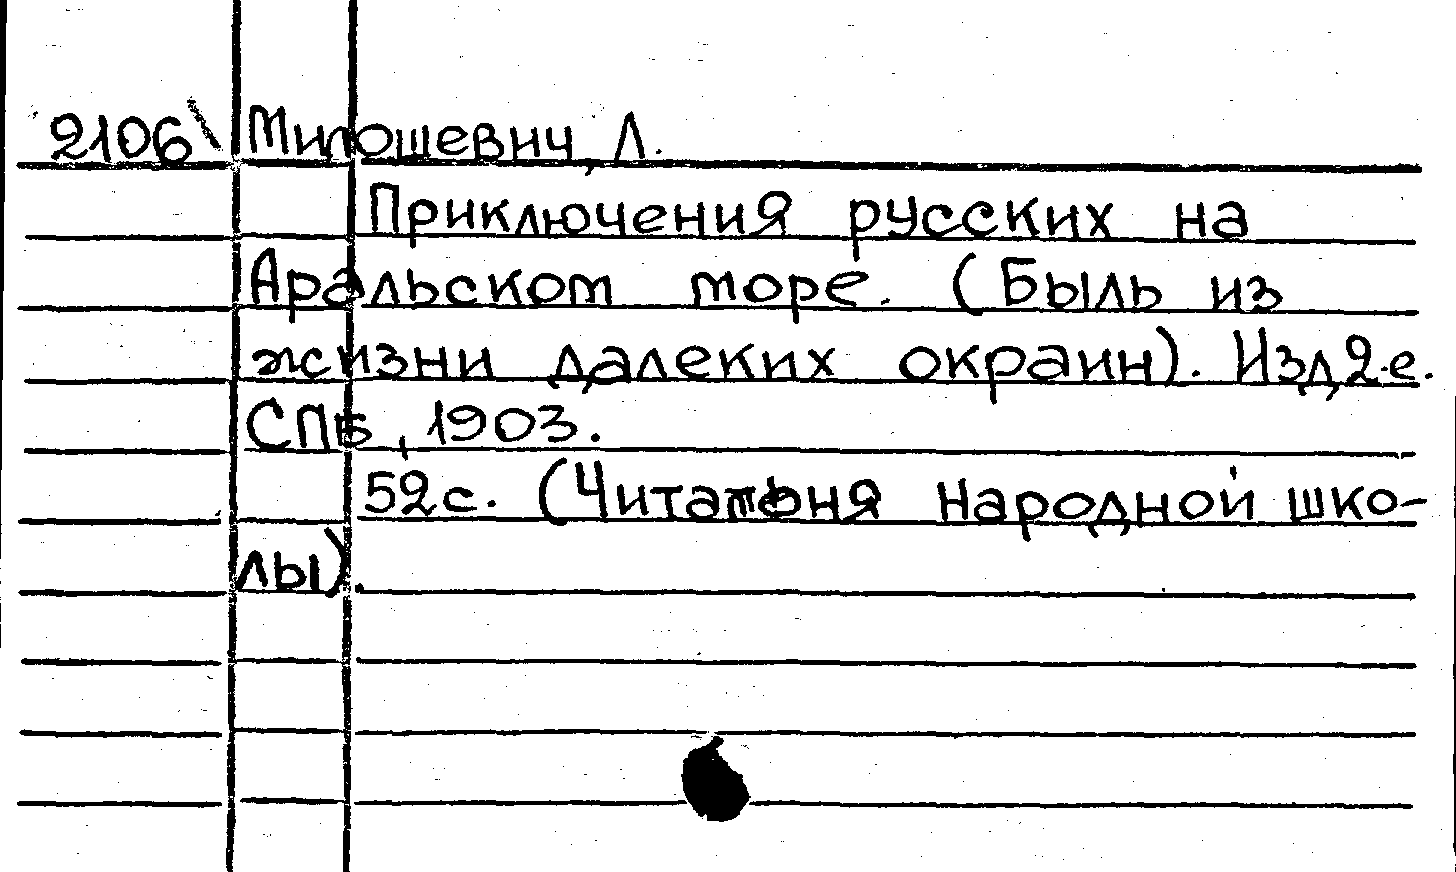 2106\ Милошевич, Л.
Приключения русских на
Аральском море. (Быль из
жизни далеких окраин). Изд. 2-е.
СПБ, 1903.
52 с. (Читальня народной шко-
лы).